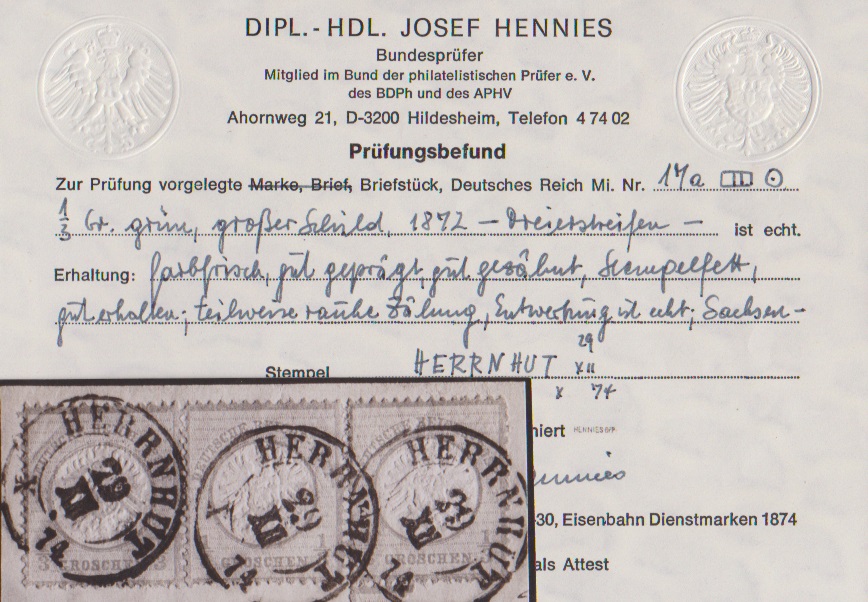 DIPL.-HDL. JOSEF HENNIES
Bundesprüfer
Mitglied im Bund der philatelistischen Prüfer e. V.
des BDPh und des APHV
Ahornweg 21, D-3200 Hildesheim, Telefon 4 74 02
Prüfungsbefund
Zur Prüfung vorgelegte Marke, Brief, Briefstück, Deutsches Reich Mi. Nr. 17a
1/3 Gr. grün, großer Schild, 1872 – Dreierstreifen – ist echt.
Erhaltung: farbfrisch, gut geprägt, gut gezähnt, Stempelfett,
gut erhalten; teilweise rauhe Zähnung, Entwertung ist echt; Sachsen-
29
Stempel HERRNHUT XII
X 74
niert HENNIES BPP
Hennies
30, Eisenbahn Dienstmarken 1874
als Attest
HERRNHUT HERRNHUT HERRNHUT
29 29 29
XII XII XII
X 74 X 74 74
GROSCHEN GROSCHEN GROSCHEN